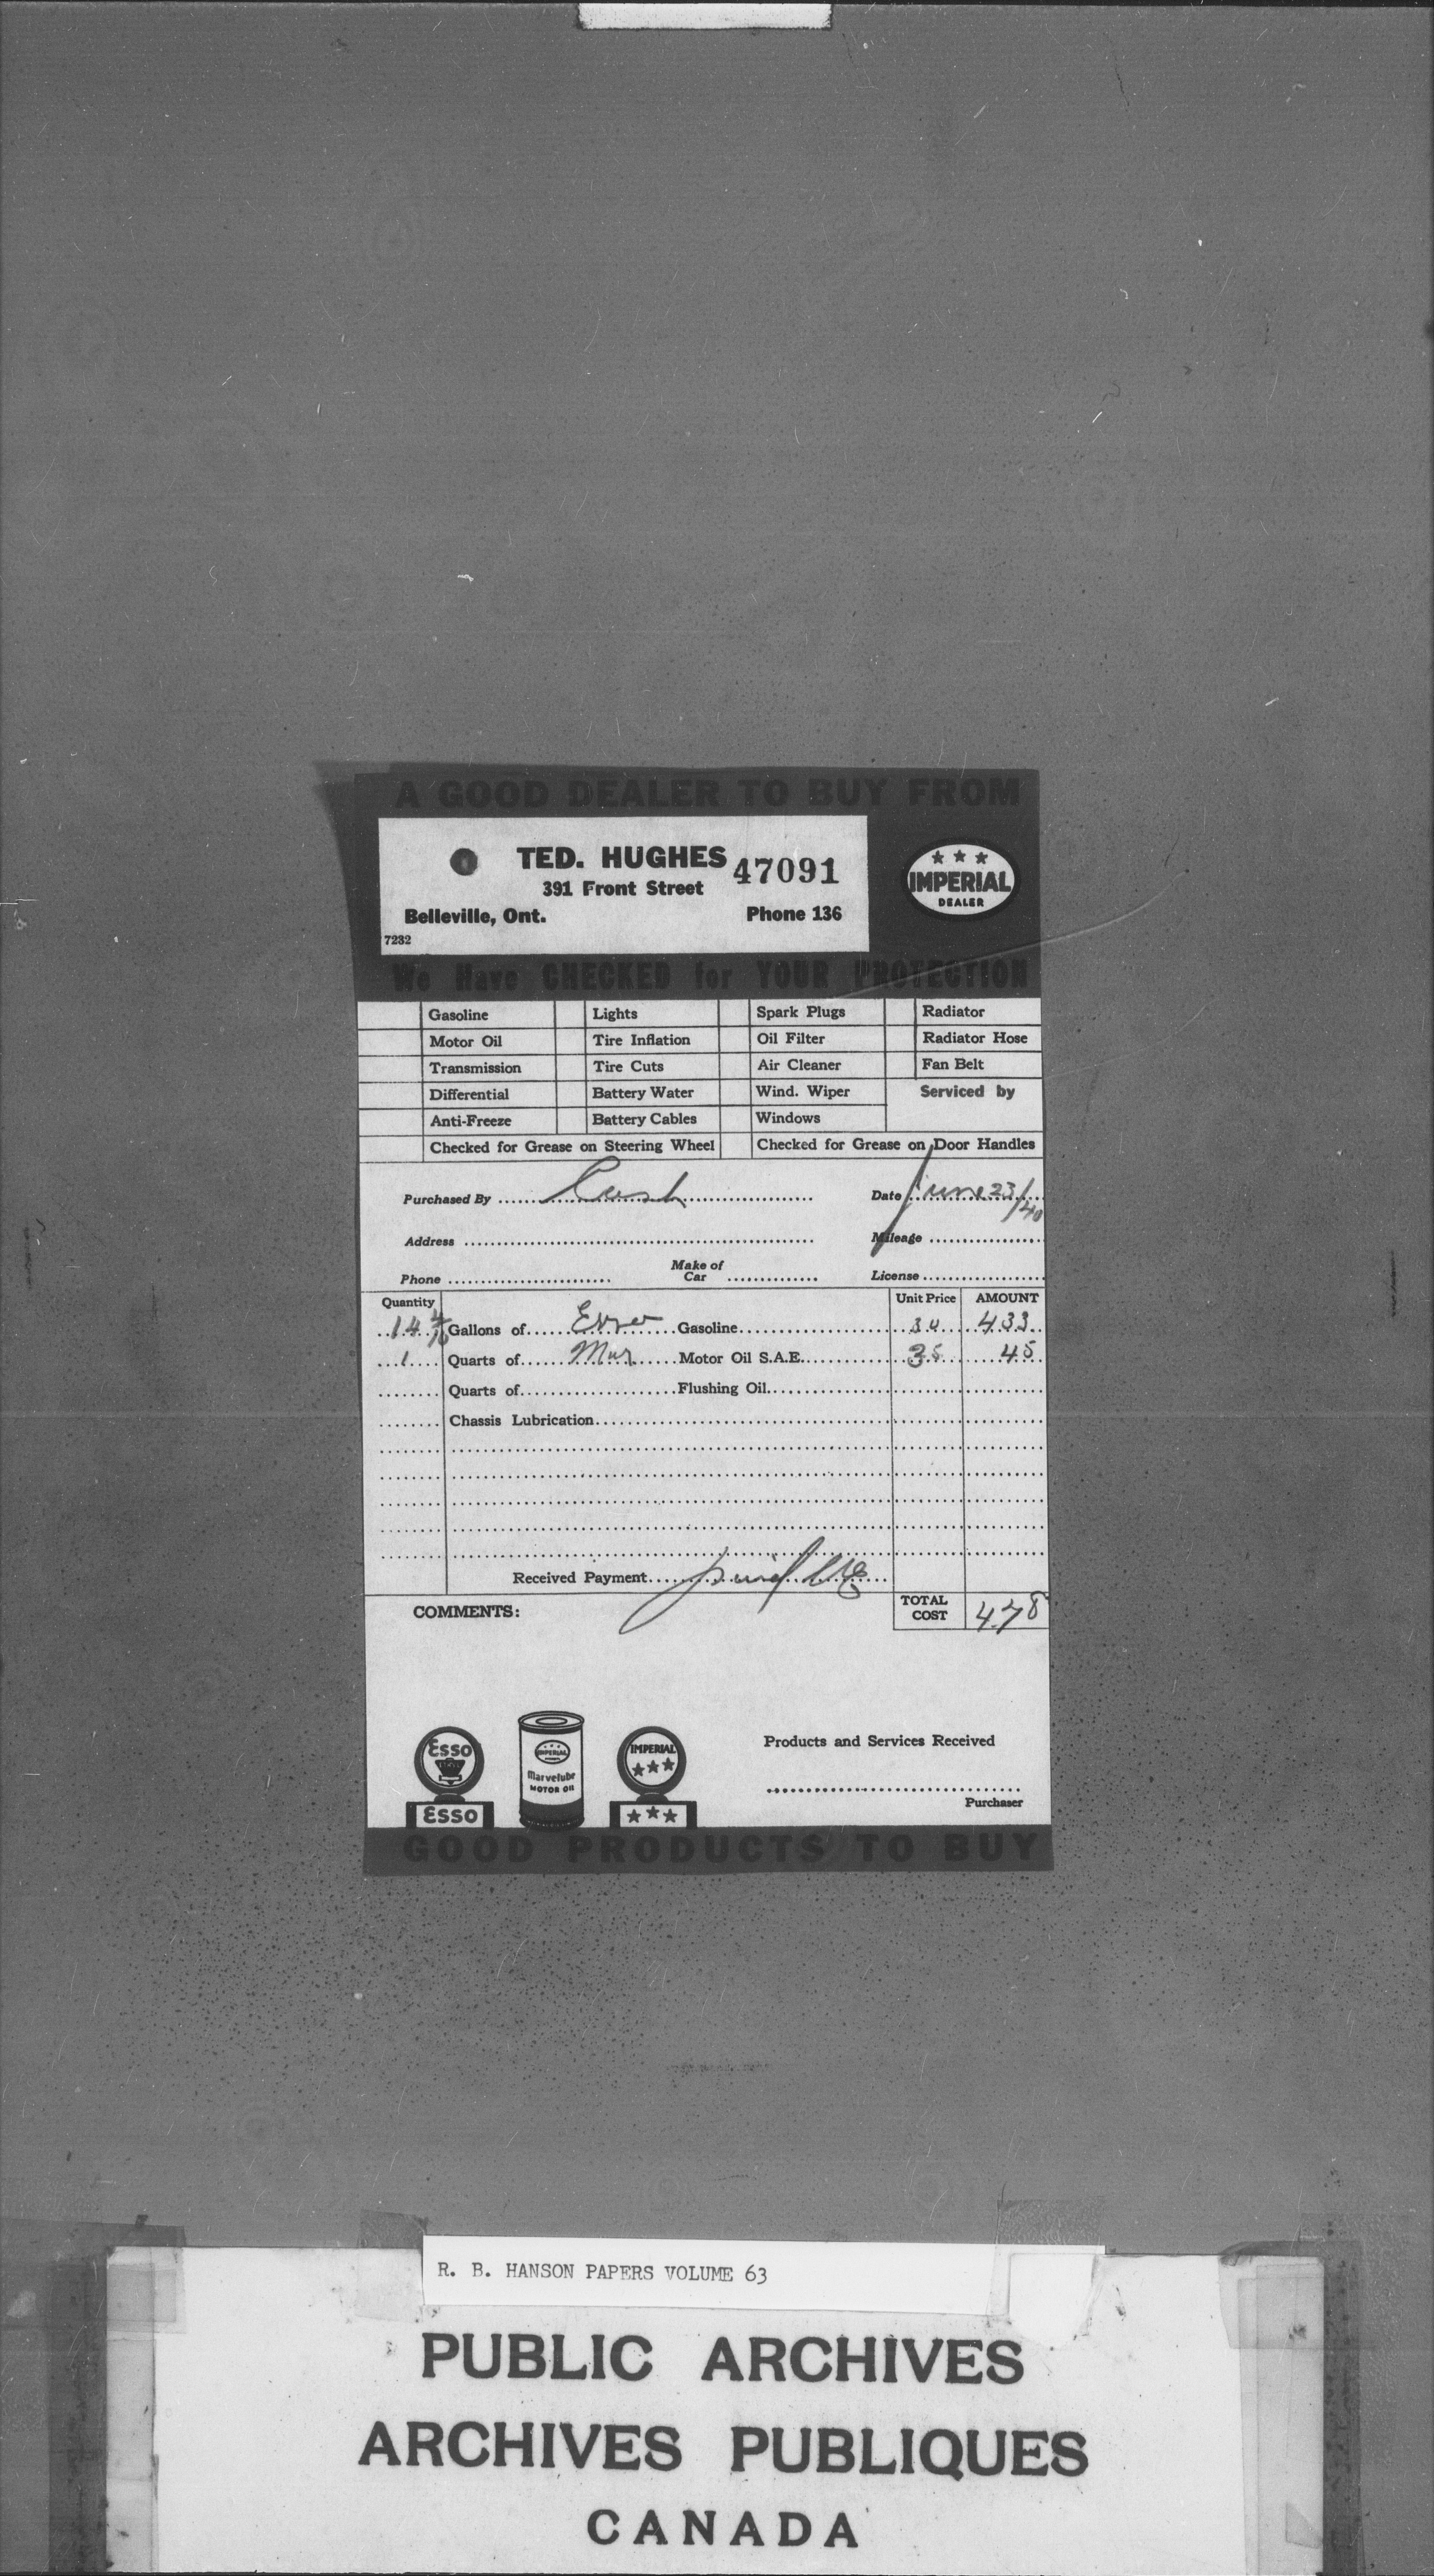 A GOOD DEALER TO BUY FROM
TED. HUGHES 47091
391 Front Street
Belleville, Ont. Phone 136
7232
★ ★ ★
IMPERIAL
DEALER
We Have CHECKED for YOUR PROTECTION
Gasoline Lights Spark Plugs Radiator
Motor Oil Tire Inflation Oil Filter Radiator Hose
Transmission Tire Cuts Air Cleaner Fan Belt
Differential Battery Water Wind. Wiper Serviced by
Anti-Freeze Battery Cables Windows
Checked for Grease on Steering Wheel Checked for Grease on Door Handles
Purchased By Cash Date June 23/40
Address Mileage
Phone Make of Car License
Quantity Unit Price AMOUNT
14 4/10 Gallons of Esso Gasoline 30 4.33
1 Quarts of Mar Motor Oil S.A.E. 45
Quarts of Flushing Oil
Chassis Lubrication
Received Payment paid
COMMENTS: TOTAL COST 4.78
Esso
Esso
IMPERIAL
Marvelube
MOTOR OIL
IMPERIAL
★★★
★★★
Products and Services Received
Purchaser
GOOD PRODUCTS TO BUY
R. B. HANSON PAPERS VOLUME 63
PUBLIC ARCHIVES
ARCHIVES PUBLIQUES
CANADA